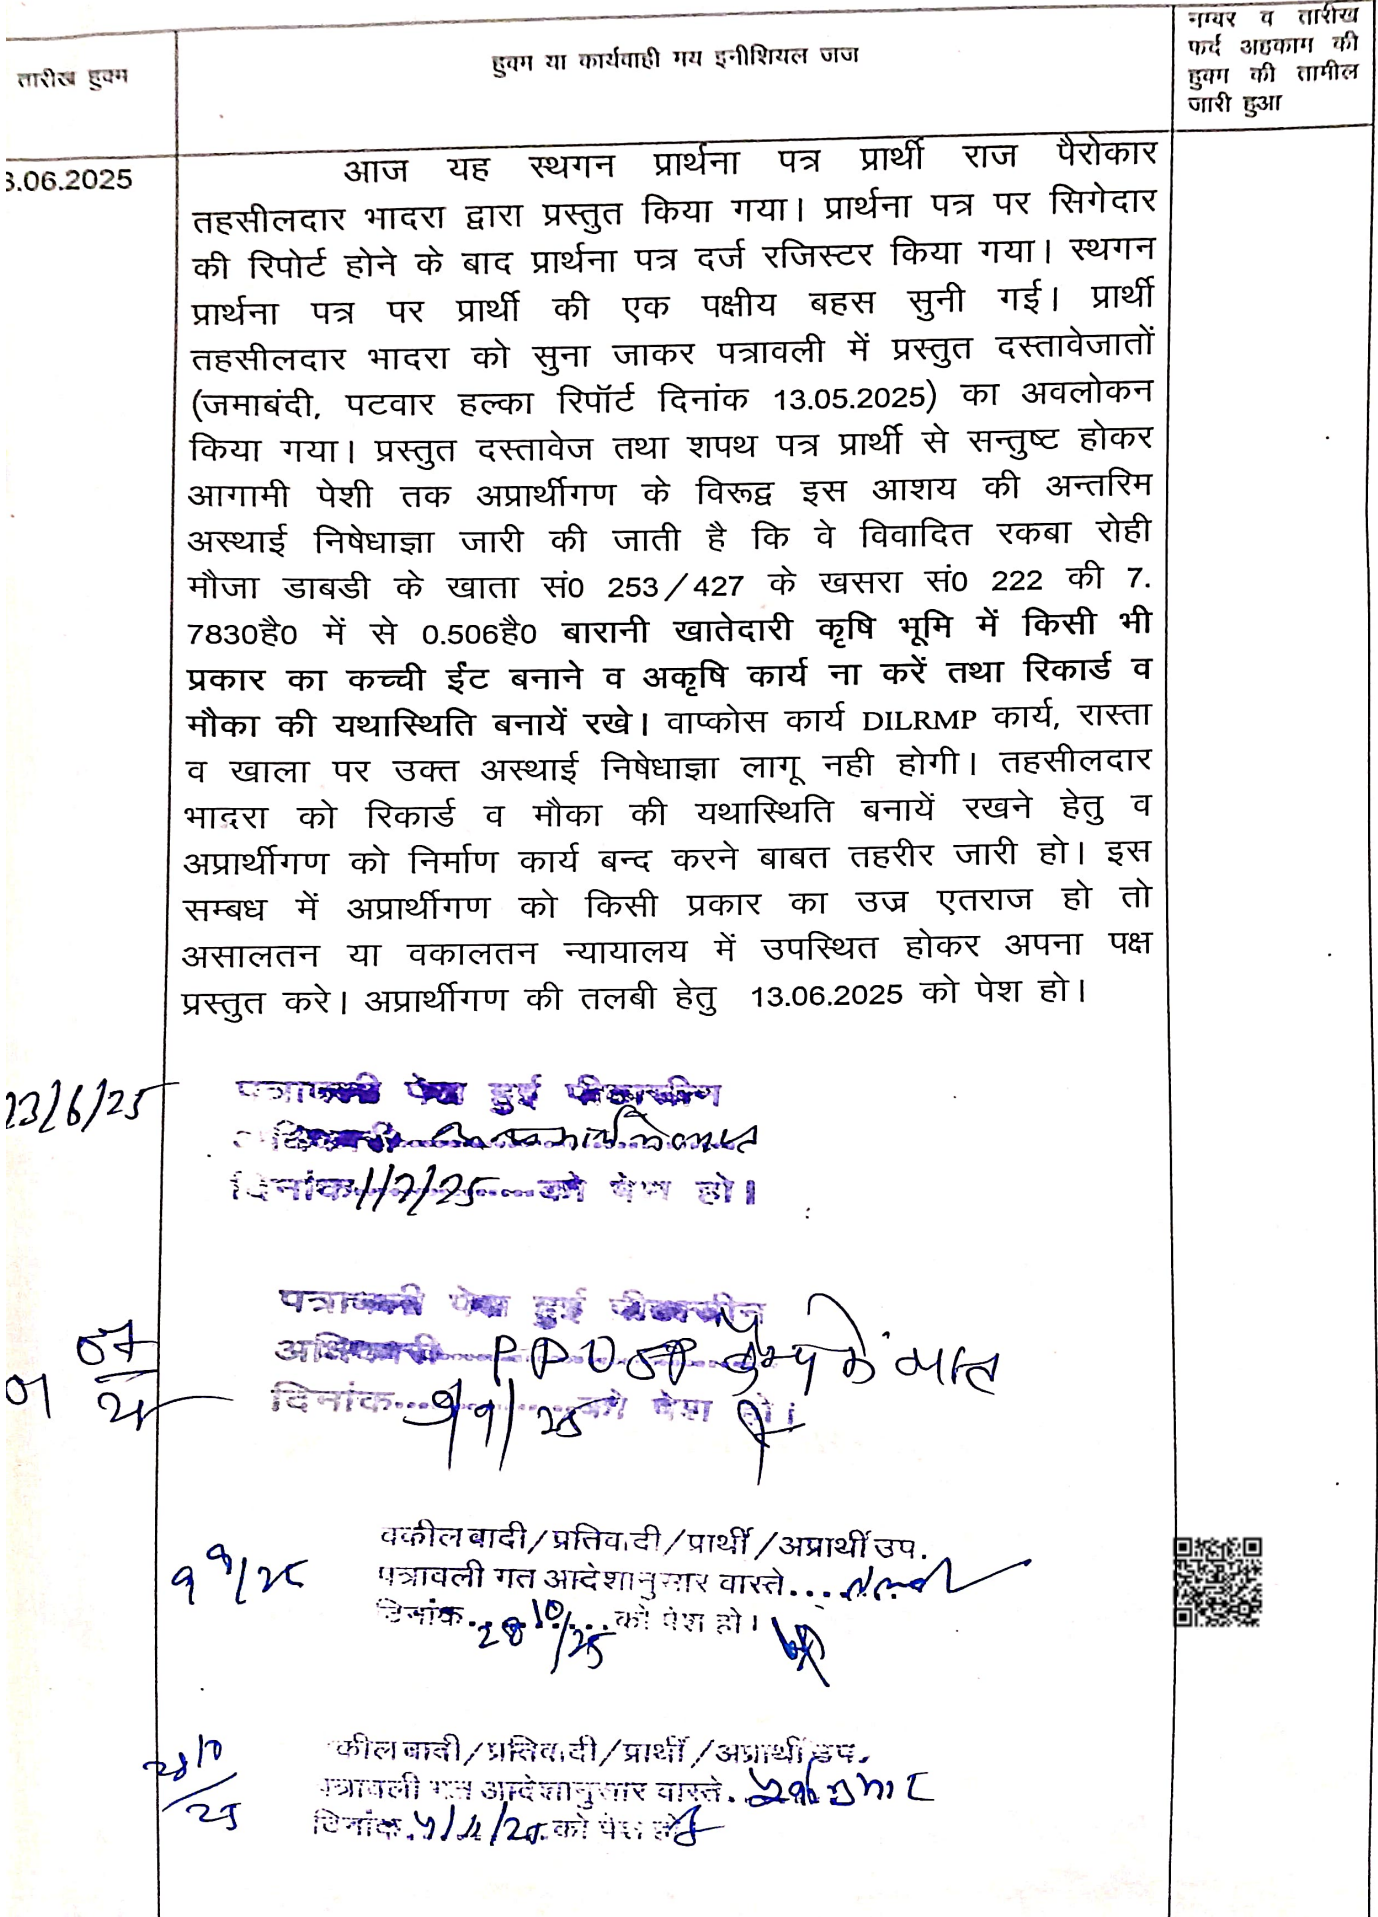 तारीख हुक्म
हुक्म या कार्यवाही मय इनीशियल जज
नम्बर व तारीख
फर्द अहकाम की
हुक्म की तामील
जारी हुआ
3.06.2025
आज यह स्थगन प्रार्थना पत्र प्रार्थी राज पैरोकार
तहसीलदार भादरा द्वारा प्रस्तुत किया गया। प्रार्थना पत्र पर सिगेदार
की रिपोर्ट होने के बाद प्रार्थना पत्र दर्ज रजिस्टर किया गया। स्थगन
प्रार्थना पत्र पर प्रार्थी की एक पक्षीय बहस सुनी गई। प्रार्थी
तहसीलदार भादरा को सुना जाकर पत्रावली में प्रस्तुत दस्तावेजातों
(जमाबंदी, पटवार हल्का रिपॉर्ट दिनांक 13.05.2025) का अवलोकन
किया गया। प्रस्तुत दस्तावेज तथा शपथ पत्र प्रार्थी से सन्तुष्ट होकर
आगामी पेशी तक अप्रार्थीगण के विरूद्व इस आशय की अन्तरिम
अस्थाई निषेधाज्ञा जारी की जाती है कि वे विवादित रकबा रोही
मौजा डाबडी के खाता सं0 253/427 के खसरा सं0 222 की 7.
7830है0 में से 0.506है0 बारानी खातेदारी कृषि भूमि में किसी भी
प्रकार का कच्ची ईंट बनाने व अकृषि कार्य ना करें तथा रिकार्ड व
मौका की यथास्थिति बनायें रखे। वाप्कोस कार्य DILRMP कार्य, रास्ता
व खाला पर उक्त अस्थाई निषेधाज्ञा लागू नही होगी। तहसीलदार
भादरा को रिकार्ड व मौका की यथास्थिति बनायें रखने हेतु व
अप्रार्थीगण को निर्माण कार्य बन्द करने बाबत तहरीर जारी हो। इस
सम्बध में अप्रार्थीगण को किसी प्रकार का उज्र एतराज हो तो
असालतन या वकालतन न्यायालय में उपस्थित होकर अपना पक्ष
प्रस्तुत करे। अप्रार्थीगण की तलबी हेतु 13.06.2025 को पेश हो।
23/6/25
पत्रावली पेश हुई पीठासीन
अधिकारी
दिनांक 1/7/25 को पेश हो।
पत्रावली पेश हुई पीठासीन
अधिकारी
दिनांक 9/9/25 को पेश हो।
9 9/25
वकील वादी/प्रतिवादी/प्रार्थी/अप्रार्थी उप.
पत्रावली गत आदेशानुसार वास्ते
दिनांक 28 10/25 को पेश हो।
28 10/25
कील वादी/प्रतिवादी/प्रार्थी/अप्रार्थी उप.
पत्रावली गत आदेशानुसार वास्ते
दिनांक को पेश हो